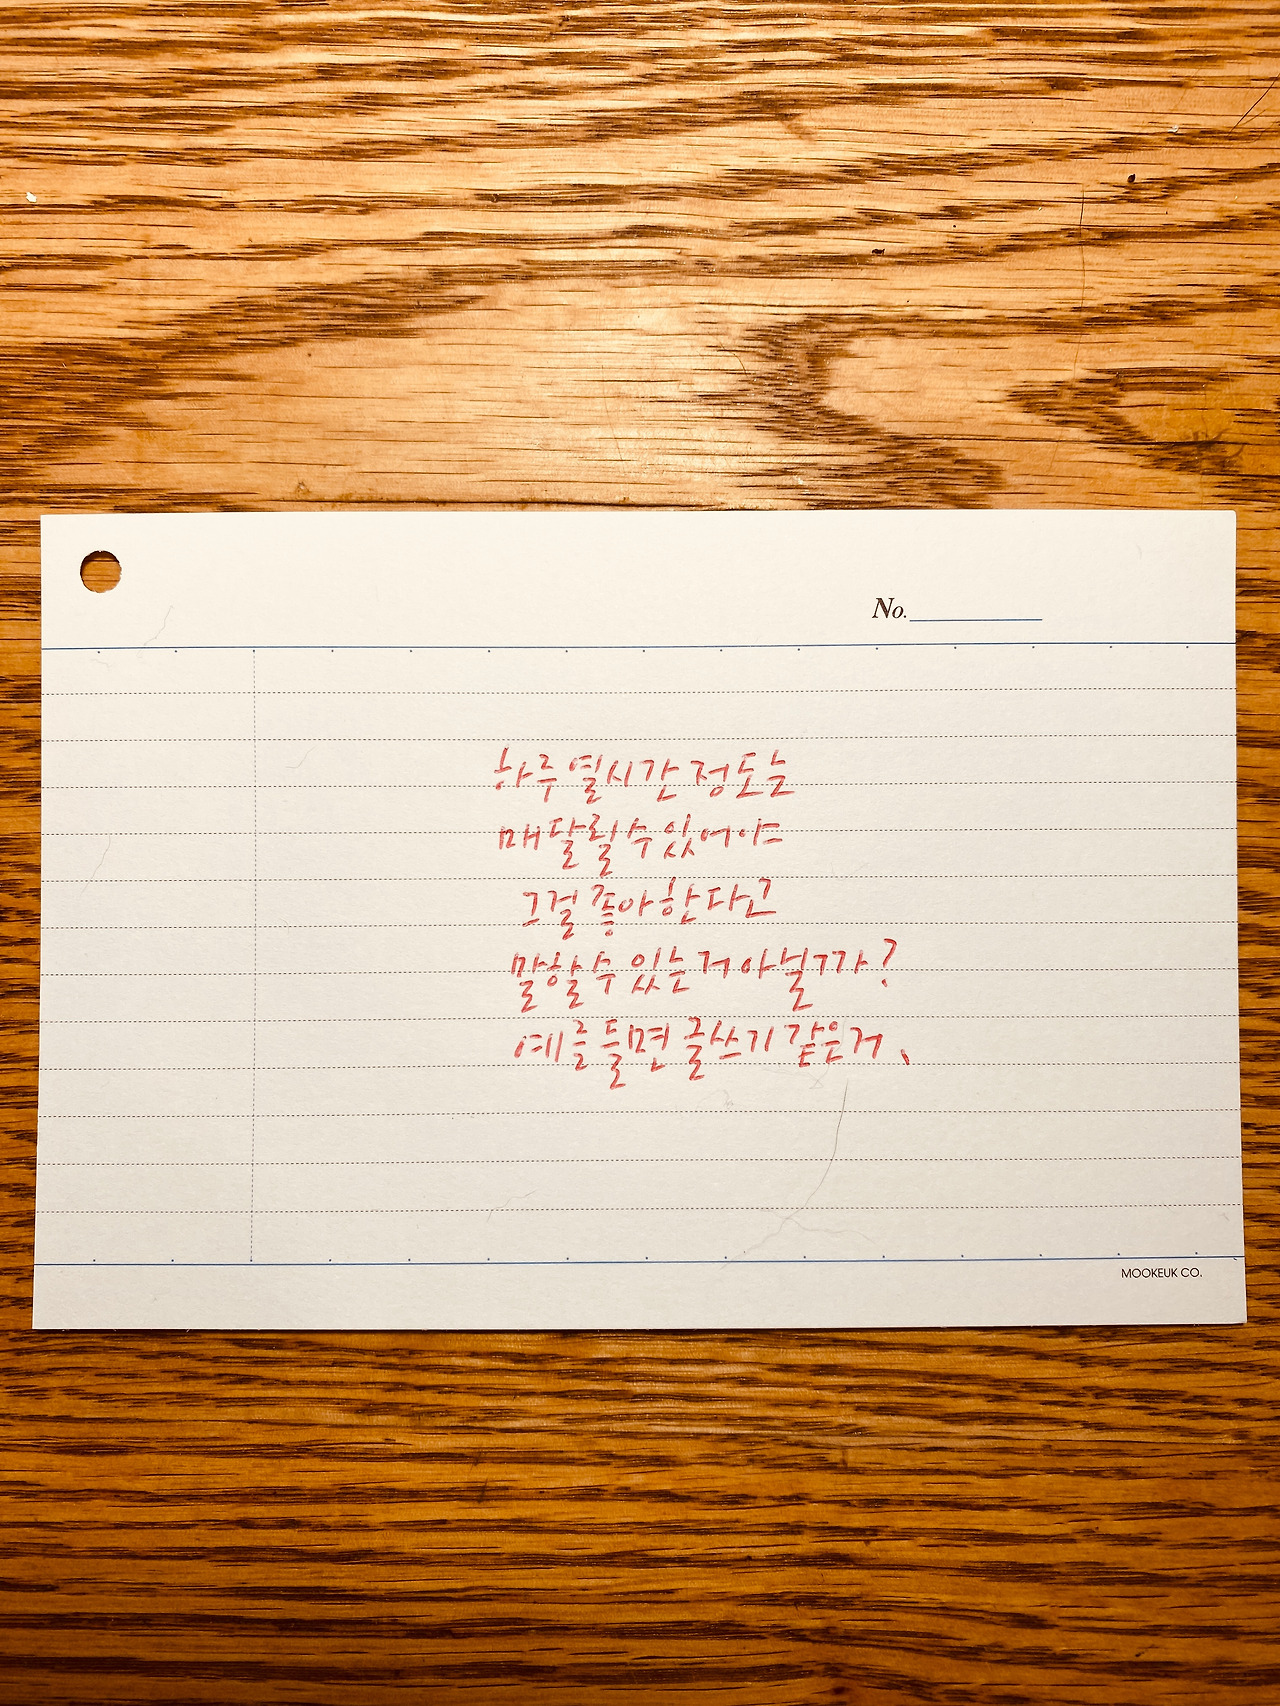 No.
하루 열시간 정도는
매달릴 수 있어야
그걸 좋아한다고
말할 수 있는 거 아닐까?
예를 들면 글쓰기 같은거.
MOOKEUK CO.